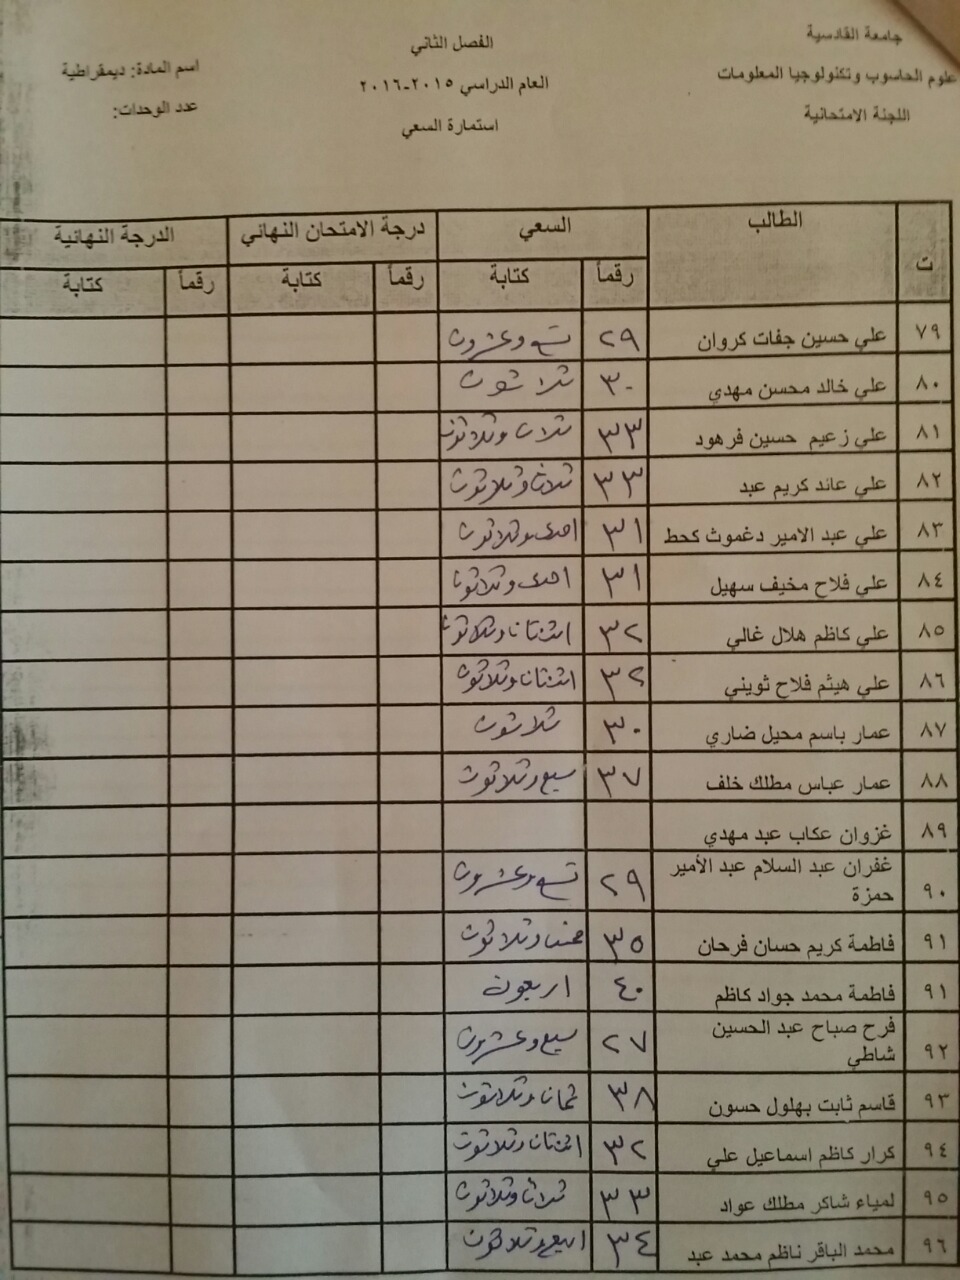 جامعة القادسية
علوم الحاسوب وتكنولوجيا المعلومات
اللجنة الامتحانية
الفصل الثاني
العام الدراسي ٢٠١٥-٢٠١٦
استمارة السعي
اسم المادة: ديمقراطية
عدد الوحدات:
ت الطالب السعي درجة الامتحان النهائي الدرجة النهائية
رقماً كتابة رقماً كتابة رقماً كتابة
٧٩ علي حسين جفات كروان ٢٩ تسع وعشرون
٨٠ علي خالد محسن مهدي ٣٠ ثلاثون
٨١ علي زعيم حسين فرهود ٣٣ ثلاث وثلاثون
٨٢ علي عائد كريم عبد ٣٣ ثلاث وثلاثون
٨٣ علي عبد الامير دغموث كحط ٣١ احدى وثلاثون
٨٤ علي فلاح مخيف سهيل ٣١ احدى وثلاثون
٨٥ علي كاظم هلال غالي ٣٢ اثنتان وثلاثون
٨٦ علي هيثم فلاح ثويني ٣٢ اثنتان وثلاثون
٨٧ عمار باسم محيل ضاري ٣٠ ثلاثون
٨٨ عمار عباس مطلك خلف ٣٧ سبع وثلاثون
٨٩ غزوان عكاب عبد مهدي
٩٠ غفران عبد السلام عبد الأمير حمزة ٢٩ تسع وعشرون
٩١ فاطمة كريم حسان فرحان ٣٥ خمس وثلاثون
٩١ فاطمة محمد جواد كاظم ٤٠ اربعون
٩٢ فرح صباح عبد الحسين شاطي ٢٧ سبع وعشرون
٩٣ قاسم ثابت بهلول حسون ٣٨ ثمان وثلاثون
٩٤ كرار كاظم اسماعيل علي ٣٢ اثنتان وثلاثون
٩٥ لمياء شاكر مطلك عواد ٣٣ ثلاث وثلاثون
٩٦ محمد الباقر ناظم محمد عبد ٣٤ اربع وثلاثون